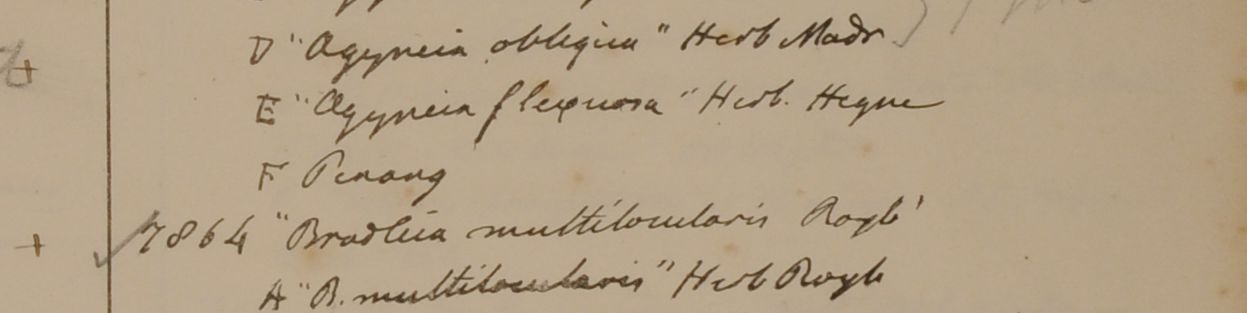 D "Agyneia obliqua" Herb Madr
E "Agyneia flexuosa" Herb. Heyne
F Penang
7864 "Bradleia multilocularis Roxb'
A "B. multilocularis" Herb Roxb